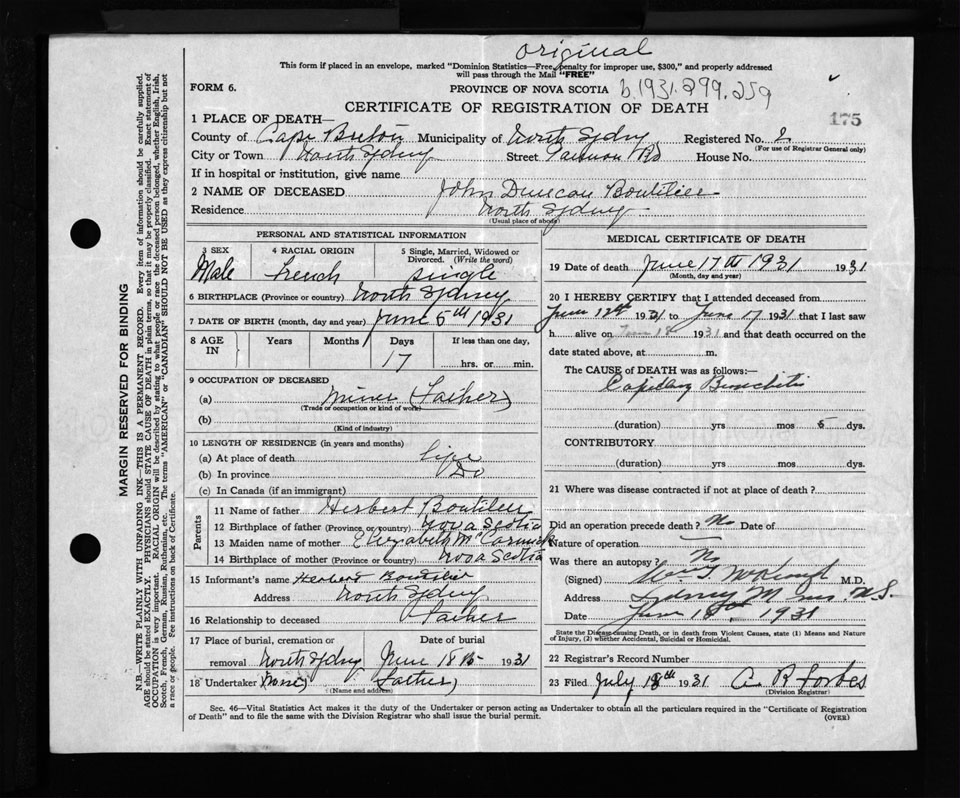 Original
This form if placed in an envelope, marked "Dominion Statistics—Free, penalty for improper use, $300," and properly addressed
will pass through the Mail "FREE"
FORM 6.
PROVINCE OF NOVA SCOTIA b.1931.299.259
CERTIFICATE OF REGISTRATION OF DEATH
175
1 PLACE OF DEATH—
County of Cape Breton Municipality of North Sydney Registered No. 2
(For use of Registrar General only)
City or Town North Sydney Street Rd House No.
If in hospital or institution, give name
2 NAME OF DECEASED John Duncan Boutilier
Residence North Sydney
(Usual place of abode)
PERSONAL AND STATISTICAL INFORMATION
3 SEX 4 RACIAL ORIGIN 5 Single, Married, Widowed or
Divorced. (Write the word)
Male French single
6 BIRTHPLACE (Province or country) North Sydney
7 DATE OF BIRTH (month, day and year) June 5th 1931
8 AGE IN Years Months Days If less than one day,
17 hrs. or min.
9 OCCUPATION OF DECEASED
(a) Miner (Father)
(Trade or occupation or kind of work)
(b)
(Kind of industry)
10 LENGTH OF RESIDENCE (in years and months)
(a) At place of death life
(b) In province Do
(c) In Canada (if an immigrant)
Parents
11 Name of father Herbert Boutilier
12 Birthplace of father (Province or country) Nova Scotia
13 Maiden name of mother Elizabeth McCormick
14 Birthplace of mother (Province or country) Nova Scotia
15 Informant's name Herbert Boutilier
Address North Sydney
16 Relationship to deceased Father
17 Place of burial, cremation or Date of burial
removal North Sydney June 18th 1931
18 Undertaker (None) Father)
(Name and address)
MEDICAL CERTIFICATE OF DEATH
19 Date of death June 17th 1931 1931
(Month, day and year)
20 I HEREBY CERTIFY that I attended deceased from
June 12th 1931 to June 17 1931 that I last saw
h alive on 1931 and that death occurred on the
date stated above, at m.
The CAUSE of DEATH was as follows:—
Capillary Bronchitis
(duration) yrs mos 5 dys.
CONTRIBUTORY
(duration) yrs mos. dys.
21 Where was disease contracted if not at place of death?
Did an operation precede death? No Date of
Nature of operation
Was there an autopsy? No
(Signed) Wm. M.D.
Address Sydney Mines N.S.
Date June 18th, 1931
State the Disease causing Death, or in death from Violent Causes, state (1) Means and Nature
of Injury, (2) whether Accidental, Suicidal or Homicidal.
22 Registrar's Record Number
23 Filed July 18th 1931 A R Forbes
(Division Registrar)
Sec. 46—Vital Statistics Act makes it the duty of the Undertaker or person acting as Undertaker to obtain all the particulars required in the "Certificate of Registration
of Death" and to file the same with the Division Registrar who shall issue the burial permit.
(OVER)
MARGIN RESERVED FOR BINDING
N.B.—WRITE PLAINLY WITH UNFADING INK—THIS IS A PERMANENT RECORD. Every item of information should be carefully supplied.
AGE should be stated EXACTLY. PHYSICIANS should STATE CAUSE OF DEATH in plain terms, so that it may be properly classified. Exact statement of
OCCUPATION is very important. RACIAL ORIGIN will be described by stating to what people or race the deceased person belonged, whether English, Irish,
Scotch, French, German, Russian, Ruthenian, etc. The terms "AMERICAN" or "CANADIAN" SHOULD NOT BE USED as they express citizenship but not
a race or people. See instructions on back of Certificate.